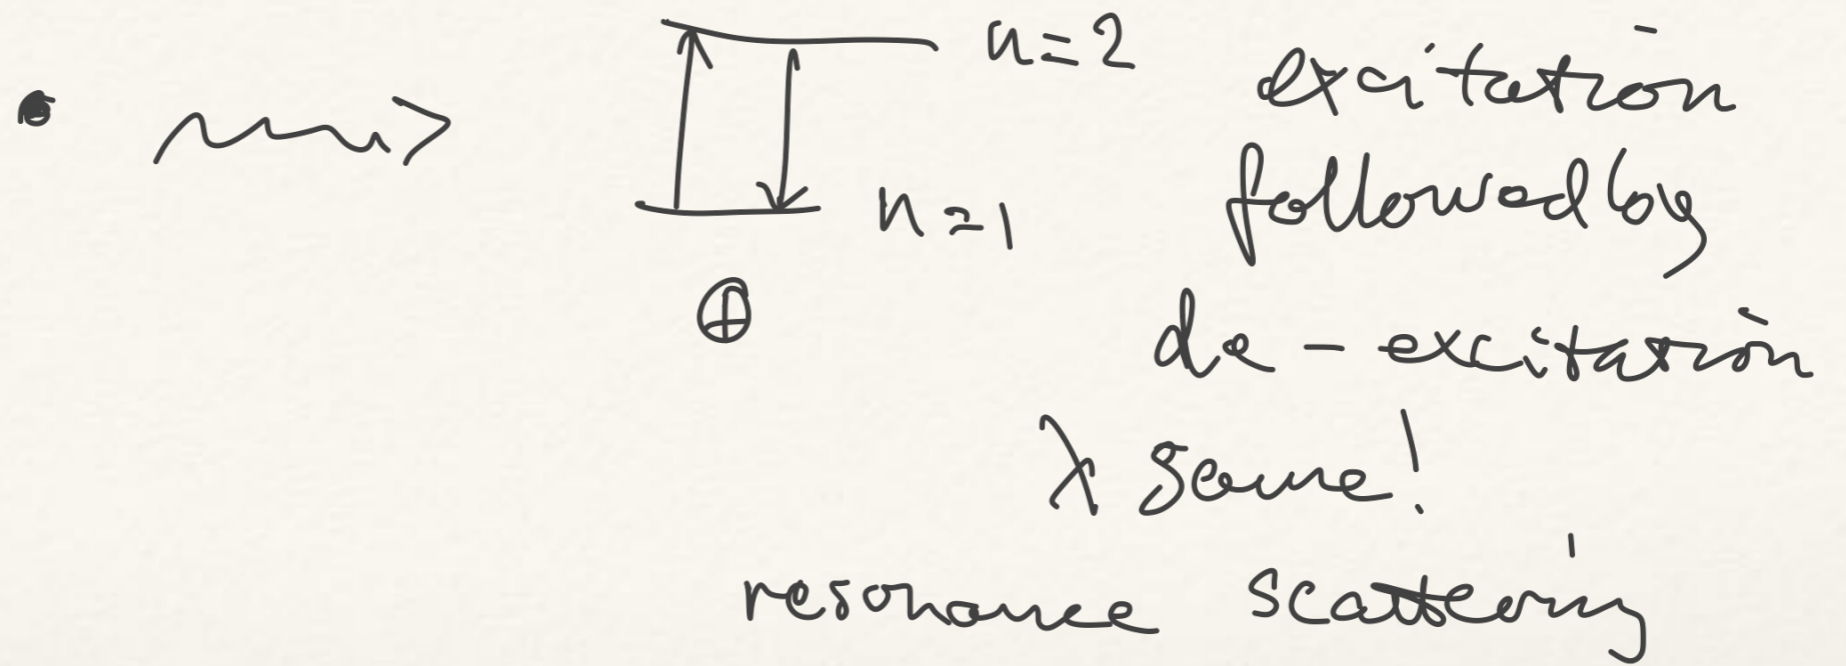 n=2
excitation
n=1
followed by
⊕
de-excitation
λ same!
resonance scattering